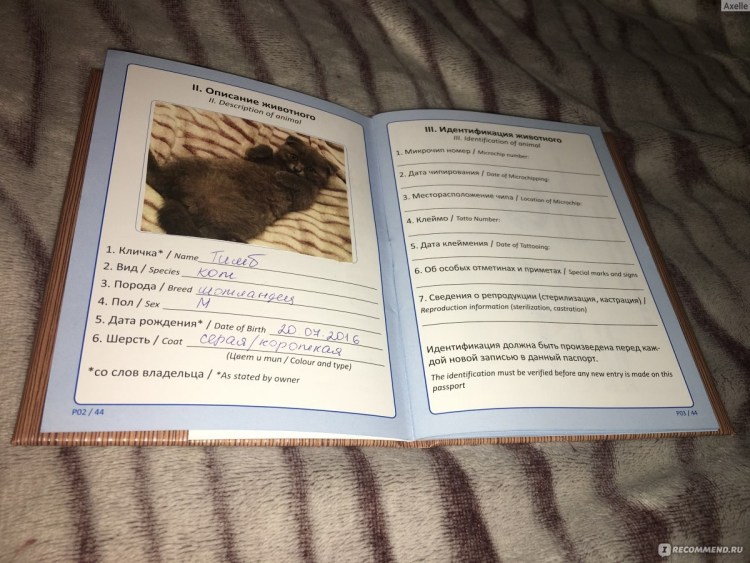 Axelle
II. Описание животного
II. Description of animal
1. Кличка* / Name Тимб
2. Вид / Species кот
3. Порода / Breed шотландец
4. Пол / Sex М
5. Дата рождения* / Date of Birth 20 07 2016
6. Шерсть / Coat серая/короткая
(Цвет и тип / Colour and type)
*со слов владельца / *As stated by owner
P02 / 44
III. Идентификация животного
III. Identification of animal
1. Микрочип номер / Microchip number:
2. Дата чипирования / Date of Microchipping:
3. Месторасположение чипа / Location of Microchip:
4. Клеймо / Tatto Number:
5. Дата клеймения / Date of Tattooing:
6. Об особых отметинах и приметах / Special marks and signs
7. Сведения о репродукции (стерилизация, кастрация) /
Reproduction information (sterilization, castration)
Идентификация должна быть произведена перед каж-
дой новой записью в данный паспорт.
The identification must be verified before any new entry is made on this
passport
P03 / 44
IRECOMMEND.RU